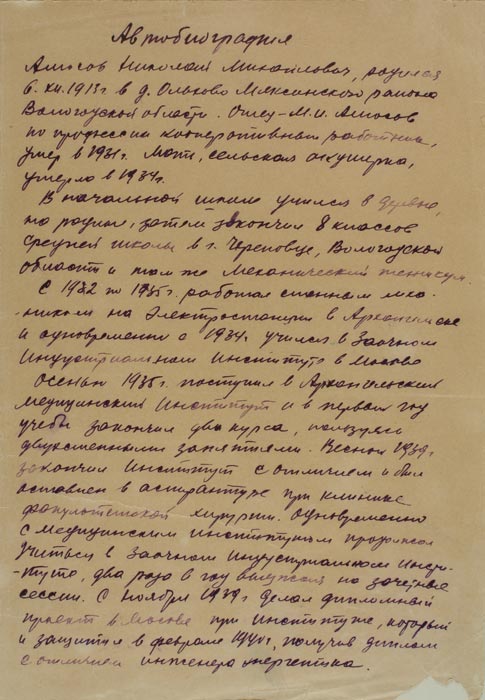 Автобиография
Амосов Николай Михайлович, родился
6.XII.1913г. в д. Ольхово Мяксинского района
Вологодской области. Отец - М.И. Амосов
по профессии кооперативный работник,
умер в 1931г. Мать, сельская акушерка,
умерла в 1934г.
В начальной школе учился в деревне,
на родине, затем закончил 8 классов
средней школы в г. Череповце, Вологодской
области и там же механический техникум.
С 1932 по 1935г. работал сменным меха-
ником на электростанции в Архангельске
и одновременно с 1934г. учился в Заочном
Индустриальном Институте в Москве
Осенью 1935г. поступил в Архангельский
медицинский Институт и в первый год
учебы закончил два курса, пользуясь
двухсменными занятиями. Весной 1939г.
закончил Институт с отличием и был
оставлен в аспирантуре при клинике
факультетской хирургии. Одновременно
с медицинским институтом продолжал
учиться в Заочном Индустриальном Инсти-
-туте, два раза в год выезжая на зачетные
сессии. С ноября 1939г. делал дипломный
проект в Москве при Институте, который
и защитил в феврале 1940г., получив диплом
с отличием инженера энергетика.